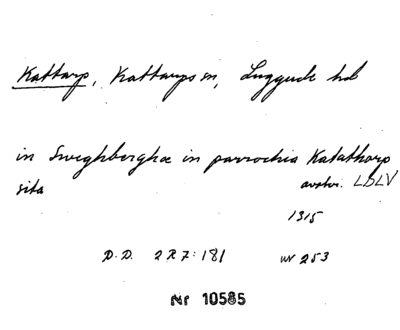 Kattarp, Kattarps sn, Luggude hd
in Sweghberghæ in parrochia Katathorp
sita avskr. LDLV
1315
D.D. 2R7:181 nr 253
Nr 10585